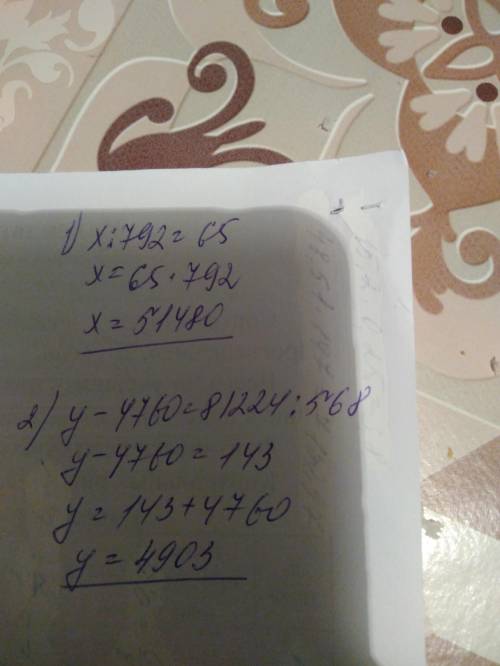 1) x:792=65
x=65·792
x=51480
2) y-4760=81224:568
y-4760=143
y=143+4760
y=4903